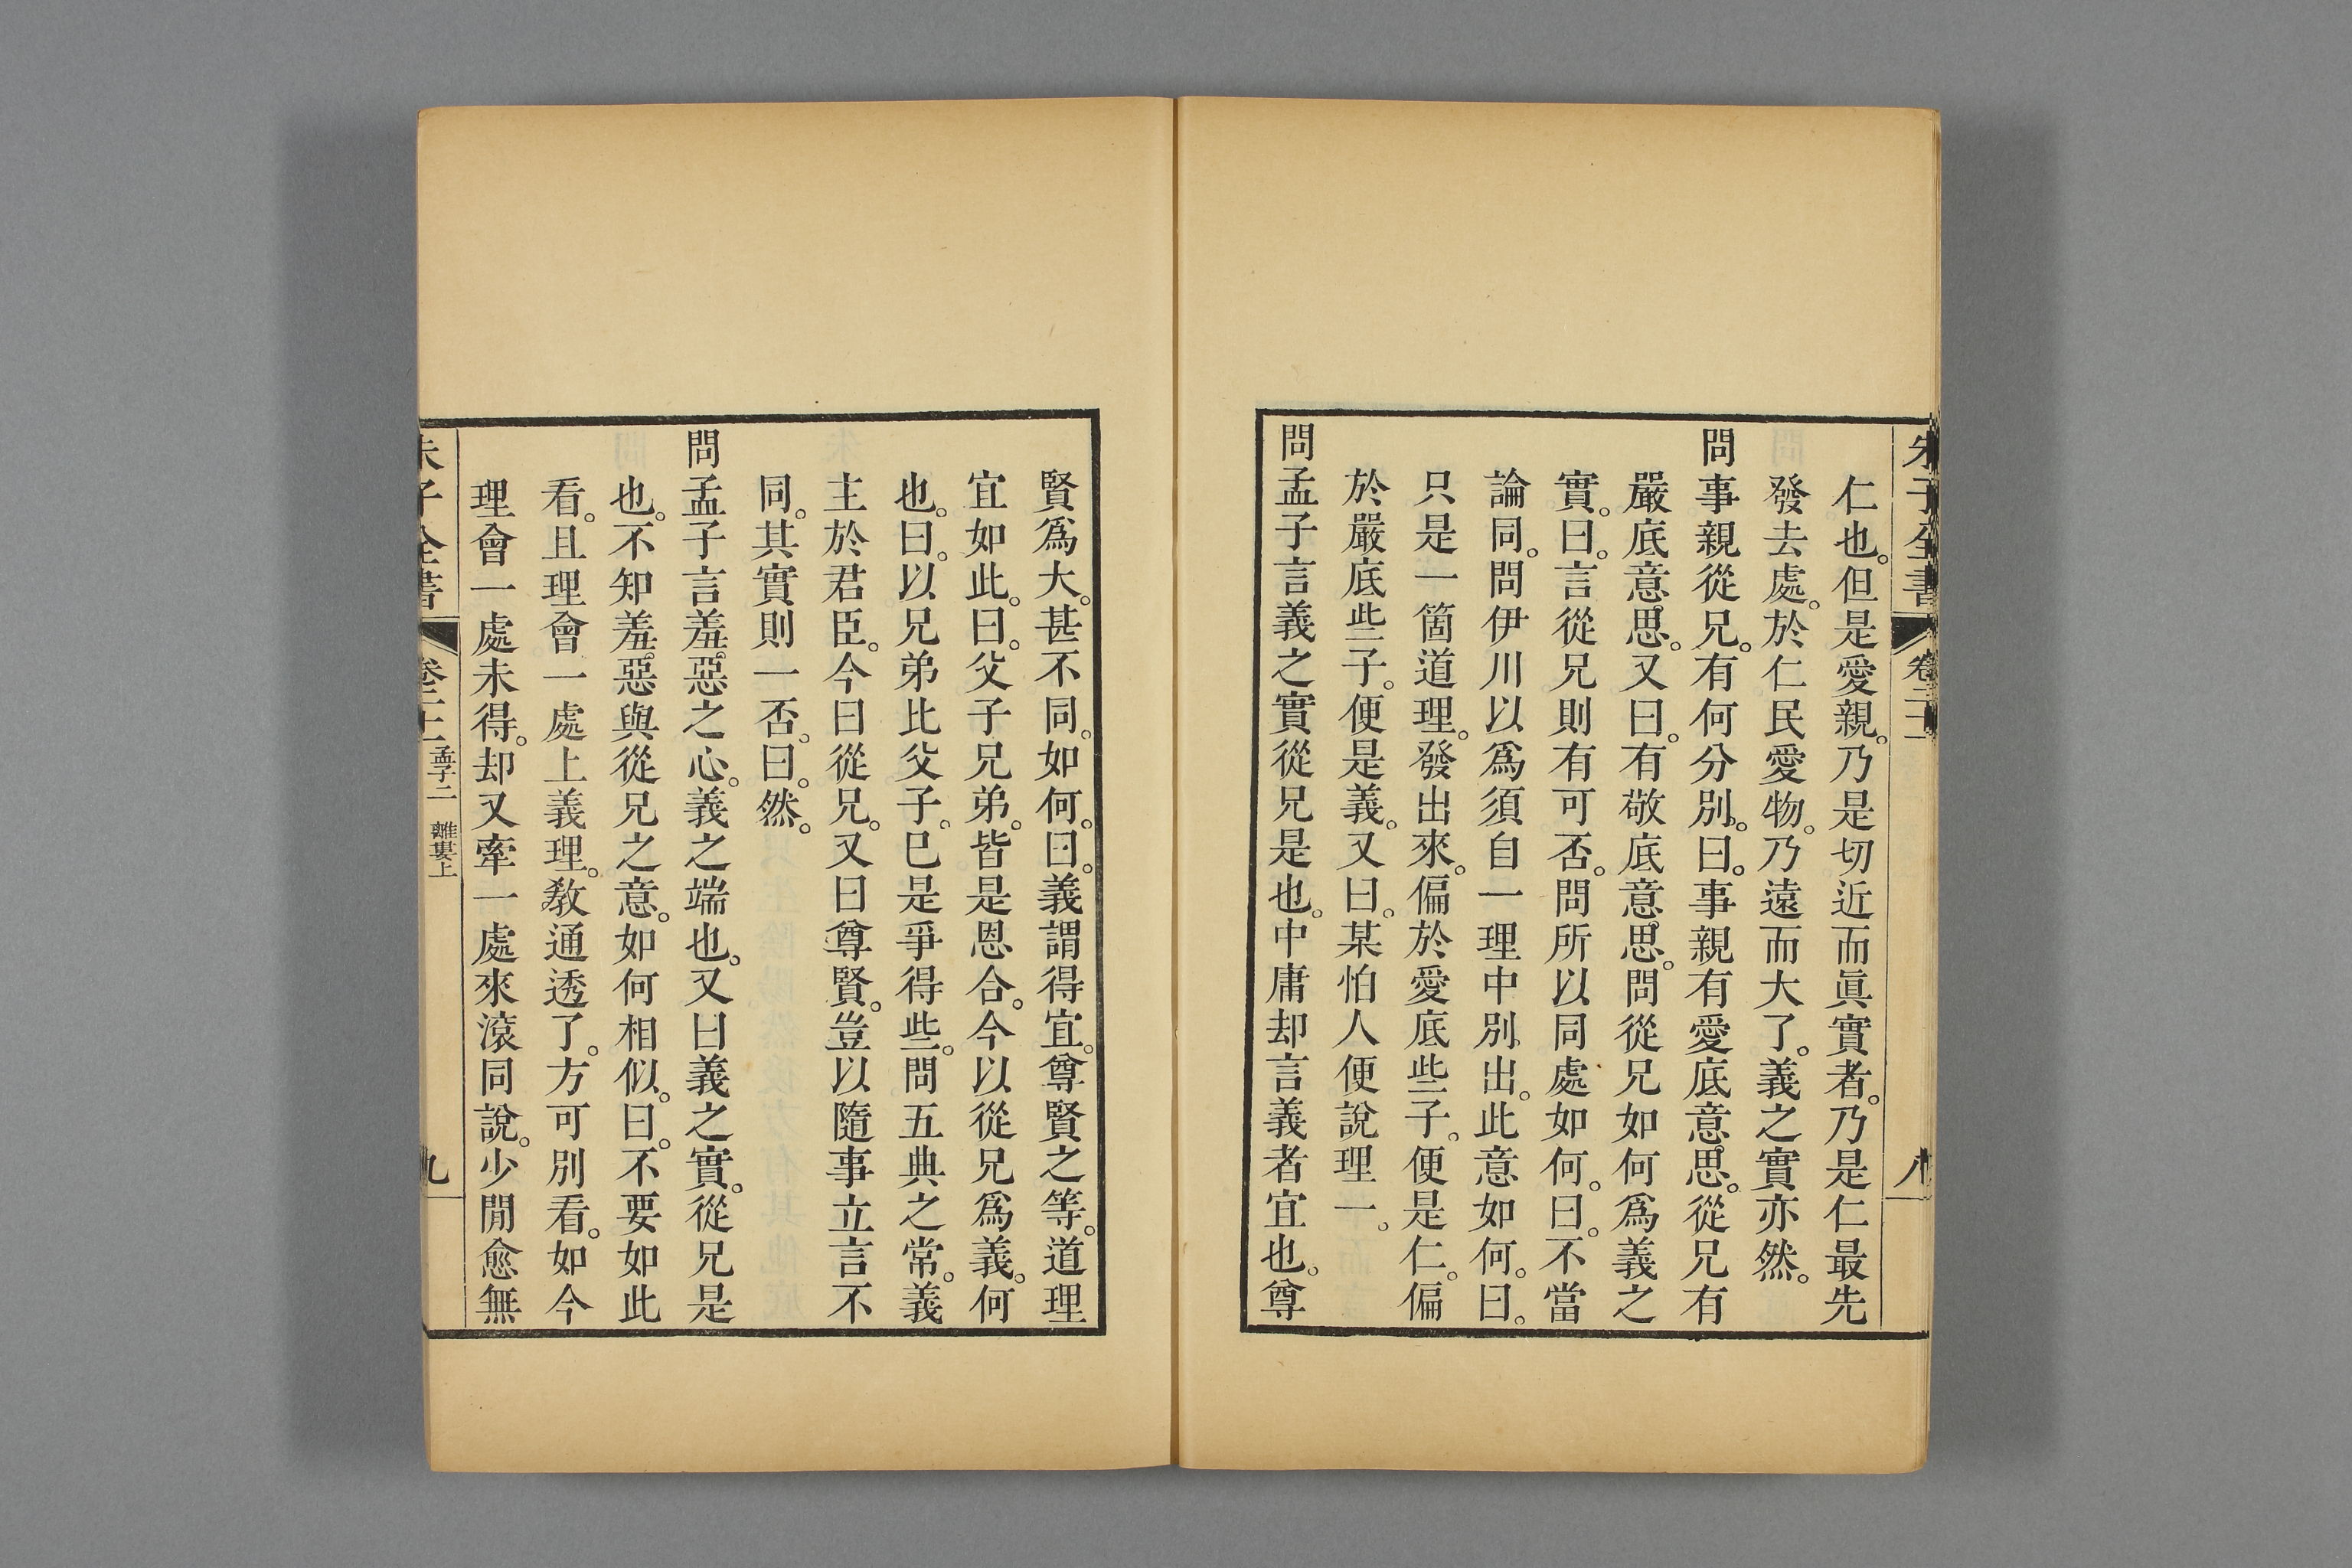 仁也。但是愛親。乃是切近而眞實者。乃是仁最先
發去處。於仁民愛物。乃遠而大了。義之實亦然。
問事親從兄。有何分別。曰。事親有愛底意思。從兄有
嚴底意思。又曰。有敬底意思。問從兄如何爲義之
實。曰。言從兄則有可否。問所以同處如何。曰。不當
論同。問伊川以爲須自一理中別出。此意如何。曰。
只是一箇道理。發出來。偏於愛底些子。便是仁。偏
於嚴底些子。便是義。又曰。某怕人便說理一。
問孟子言義之實從兄是也。中庸却言義者宜也。尊
賢爲大。甚不同。如何。曰。義謂得宜。尊賢之等。道理
宜如此。曰。父子兄弟。皆是恩合。今以從兄爲義。何
也。曰。以兄弟比父子。已是爭得些。問五典之常。義
主於君臣。今曰從兄。又曰尊賢。豈以隨事立言不
同。其實則一否。曰。然。
問孟子言羞惡之心。義之端也。又曰義之實。從兄是
也。不知羞惡與從兄之意。如何相似。曰。不要如此
看。且理會一處上義理。敎通透了。方可別看。如今
理會一處未得。却又牽一處來滚同說。少閒愈無
朱子全書
孟子二 離婁上
九